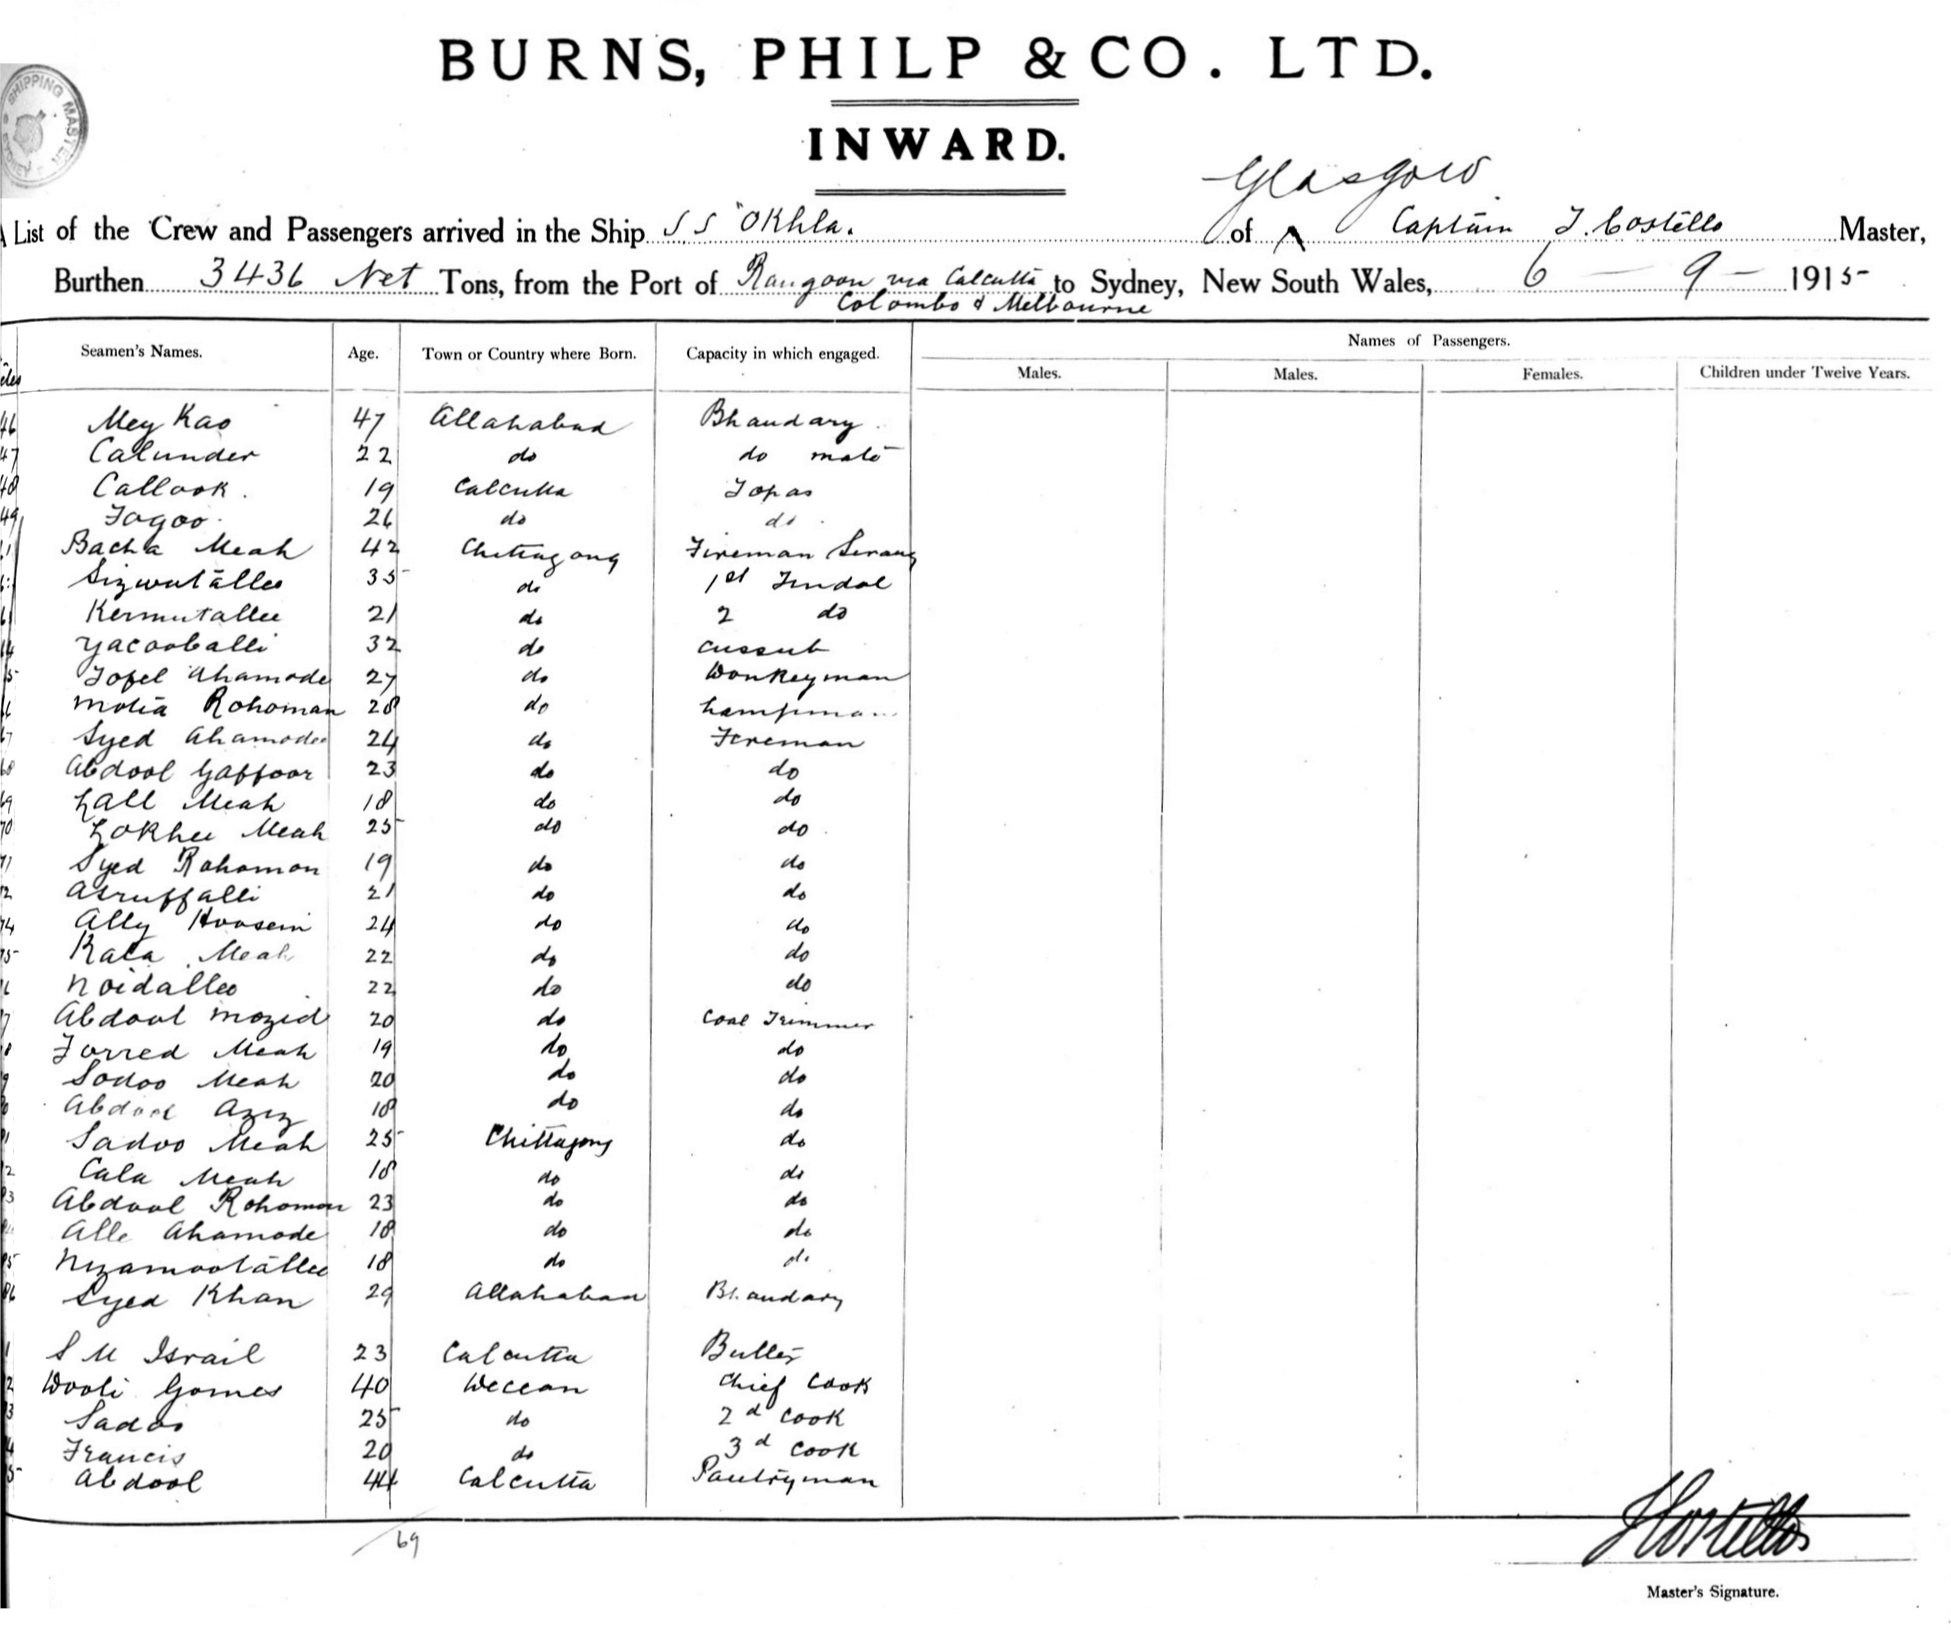 BURNS, PHILP & CO. LTD.
INWARD.
SHIPPING MASTER
Glasgow
List of the Crew and Passengers arrived in the Ship S S "Okhla. of ^ Captain J. Costello Master,
Burthen 3436 Net Tons, from the Port of Rangoon via Calcutta to Sydney, New South Wales, 6 - 9 - 1915
Colombo & Melbourne
Seamen's Names. Age. Town or Country where Born. Capacity in which engaged. Names of Passengers.
Males. Males. Females. Children under Twelve Years.
46 Mey Kao 47 Allahabad Bhandary
47 Calunder 22 do do mate
48 Callook. 19 Calcutta Topas
49 Jogoo 26 do do
Bacha Meah 42 Chittagong Fireman Serang
Sizwutallee 35 do 1st Tindal
Kermutallee 21 do 2 do
Yacooballi 32 do Cussub
Tofel Ahamode 27 do Donkeyman
Motia Rohoman 28 do Lampman
67 Syed Ahamodee 24 do Fireman
68 Abdool Gaffoor 23 do do
69 Lall Meah 18 do do
70 Lokhee Meah 25 do do
71 Syed Rohomon 19 do do
Asruffalli 21 do do
74 Ally Hoosein 24 do do
75 Kala Meah 22 do do
Noidallee 22 do do
Abdool Mozid 20 do Coal Trimmer
Forred Meah 19 do do
Sodoo Meah 20 do do
Abdool Aziz 18 do do
Sadoo Meah 25 Chittagong do
Cala Meah 18 do do
83 Abdool Rohomon 23 do do
Alle Ahamode 18 do do
85 Nizamootallee 18 do do
86 Syed Khan 29 Allahabad Bhandary
1 S M Israil 23 Calcutta Butler
2 Dooli Gomes 40 Deccan Chief Cook
3 Sadoo 25 do 2d Cook
4 Francis 20 do 3d Cook
5 Abdool 44 Calcutta Pantryman
69
J Costello
Master's Signature.